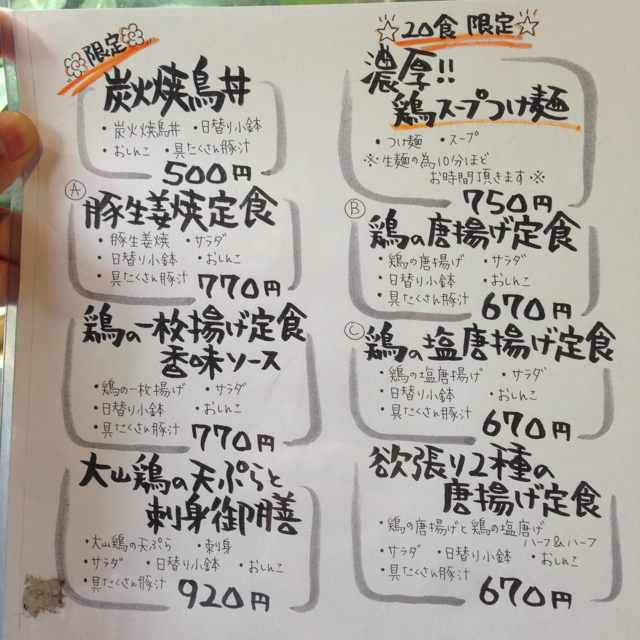 限定
炭火焼鳥丼
・炭火焼鳥丼 ・日替り小鉢
・おしんこ ・具たくさん豚汁
500円
Ⓐ
豚生姜焼定食
・豚生姜焼 ・サラダ
・日替り小鉢 ・おしんこ
・具たくさん豚汁
770円
鶏の一枚揚げ定食
香味ソース
・鶏の一枚揚げ ・サラダ
・日替り小鉢 ・おしんこ
・具たくさん豚汁
770円
大山鶏の天ぷらと
刺身御膳
・大山鶏の天ぷら ・刺身
・サラダ ・日替り小鉢 ・おしんこ
・具たくさん豚汁
920円
☆20食 限定☆
濃厚!!
鶏スープつけ麺
・つけ麺 ・スープ
※生麺の為10分ほど
お時間頂きます※
750円
Ⓑ
鶏の唐揚げ定食
・鶏の唐揚げ ・サラダ
・日替り小鉢 ・おしんこ
・具たくさん豚汁
670円
Ⓒ
鶏の塩唐揚げ定食
・鶏の塩唐揚げ ・サラダ
・日替り小鉢 ・おしんこ
・具たくさん豚汁
670円
欲張り2種の
唐揚げ定食
・鶏の唐揚げと鶏の塩唐揚げ
ハーフ&ハーフ
・サラダ ・日替り小鉢 ・おしんこ
・具たくさん豚汁
670円